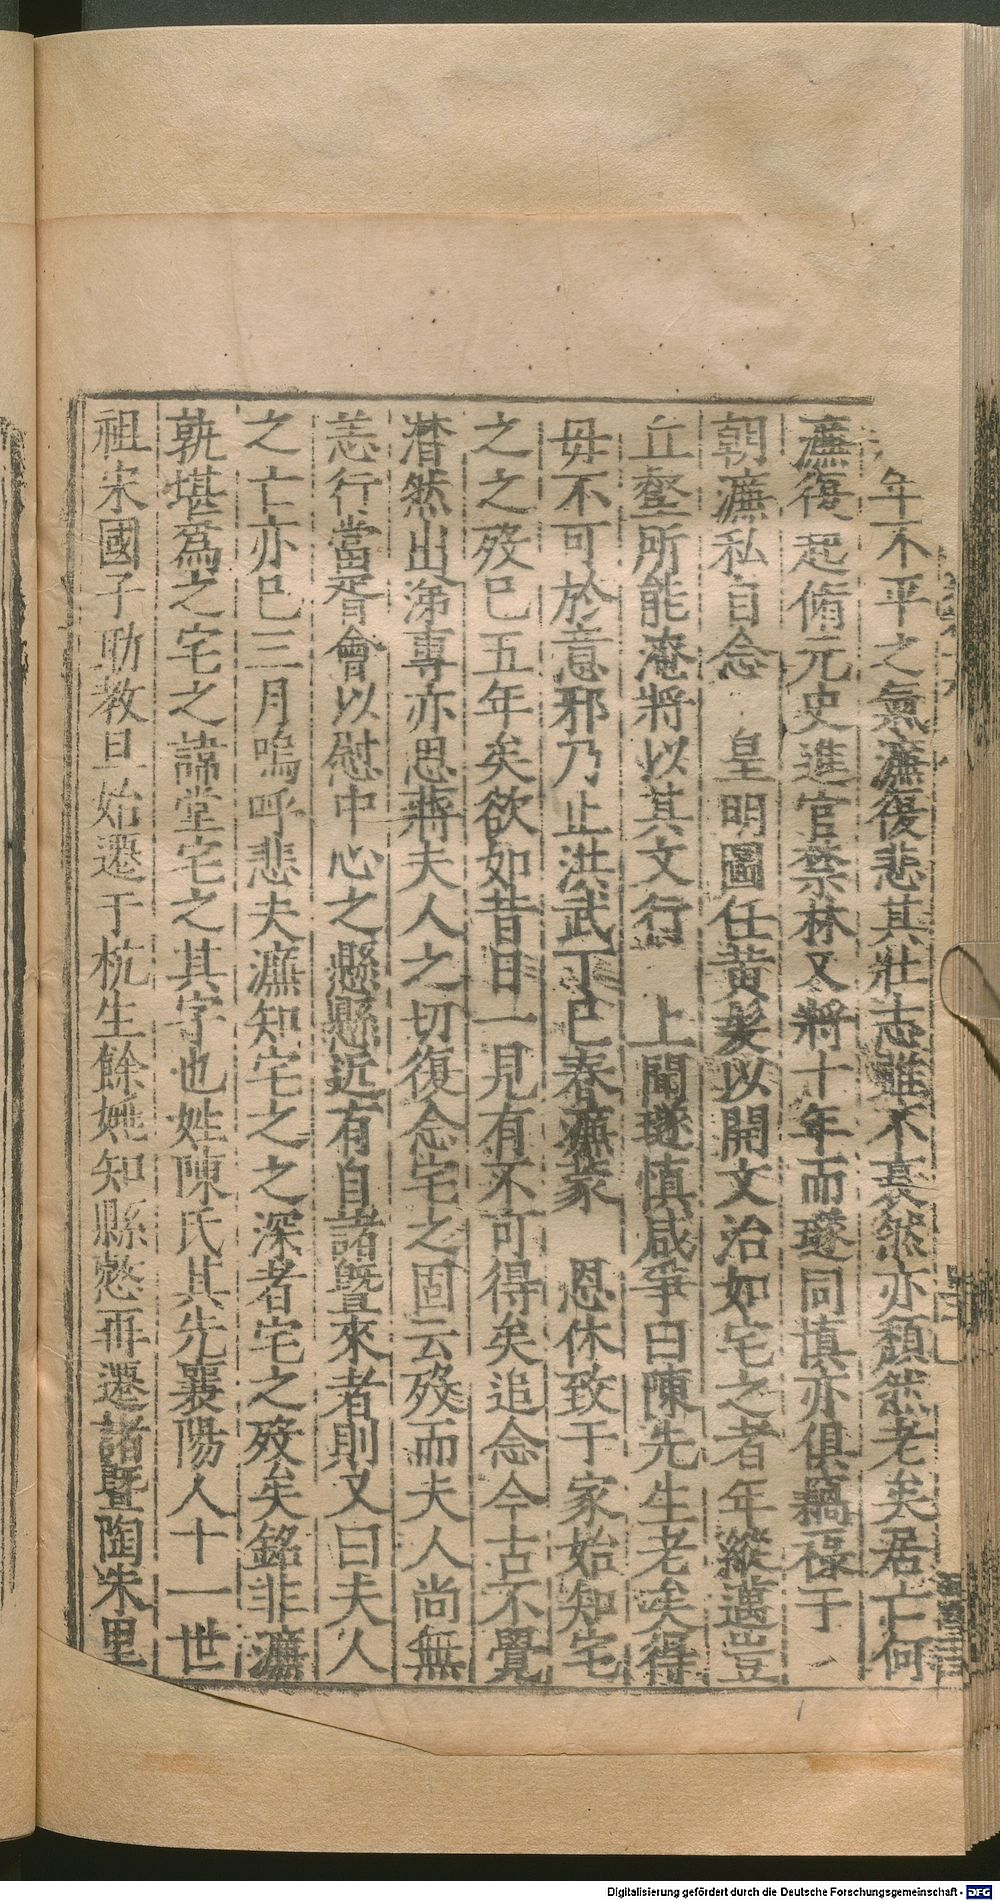 年不平之氣濂復悲其壯志雖不衰然亦頹然老矣居亡何
濂復起脩元史進官禁林又將十年而璲同慎亦俱竊祿于
朝濂私自念 皇明圖任黃髮以開文治如宅之者年縱邁豈
丘壑所能淹將以其文行 上聞璲慎咸爭曰陳先生老矣得
毋不可於意邪乃止洪武丁巳春濂蒙 恩休致于家始知宅
之之歿已五年矣欲如昔日一見有不可得矣追念今古不覺
潸然出涕專亦思蔣夫人之切復念宅之固云歿而夫人尚無
恙行當胥會以慰中心之懸懸近有自諸暨來者則又曰夫人
之亡亦已三月嗚呼悲夫濂知宅之之深者宅之歿矣銘非濂
孰堪爲之宅之諱堂宅之其字也姓陳氏其先襄陽人十一世
祖宋國子助教旦始遷于杭生餘姚知縣懲再遷諸暨陶朱里
Digitalisierung gefördert durch die Deutsche Forschungsgemeinschaft - DFG